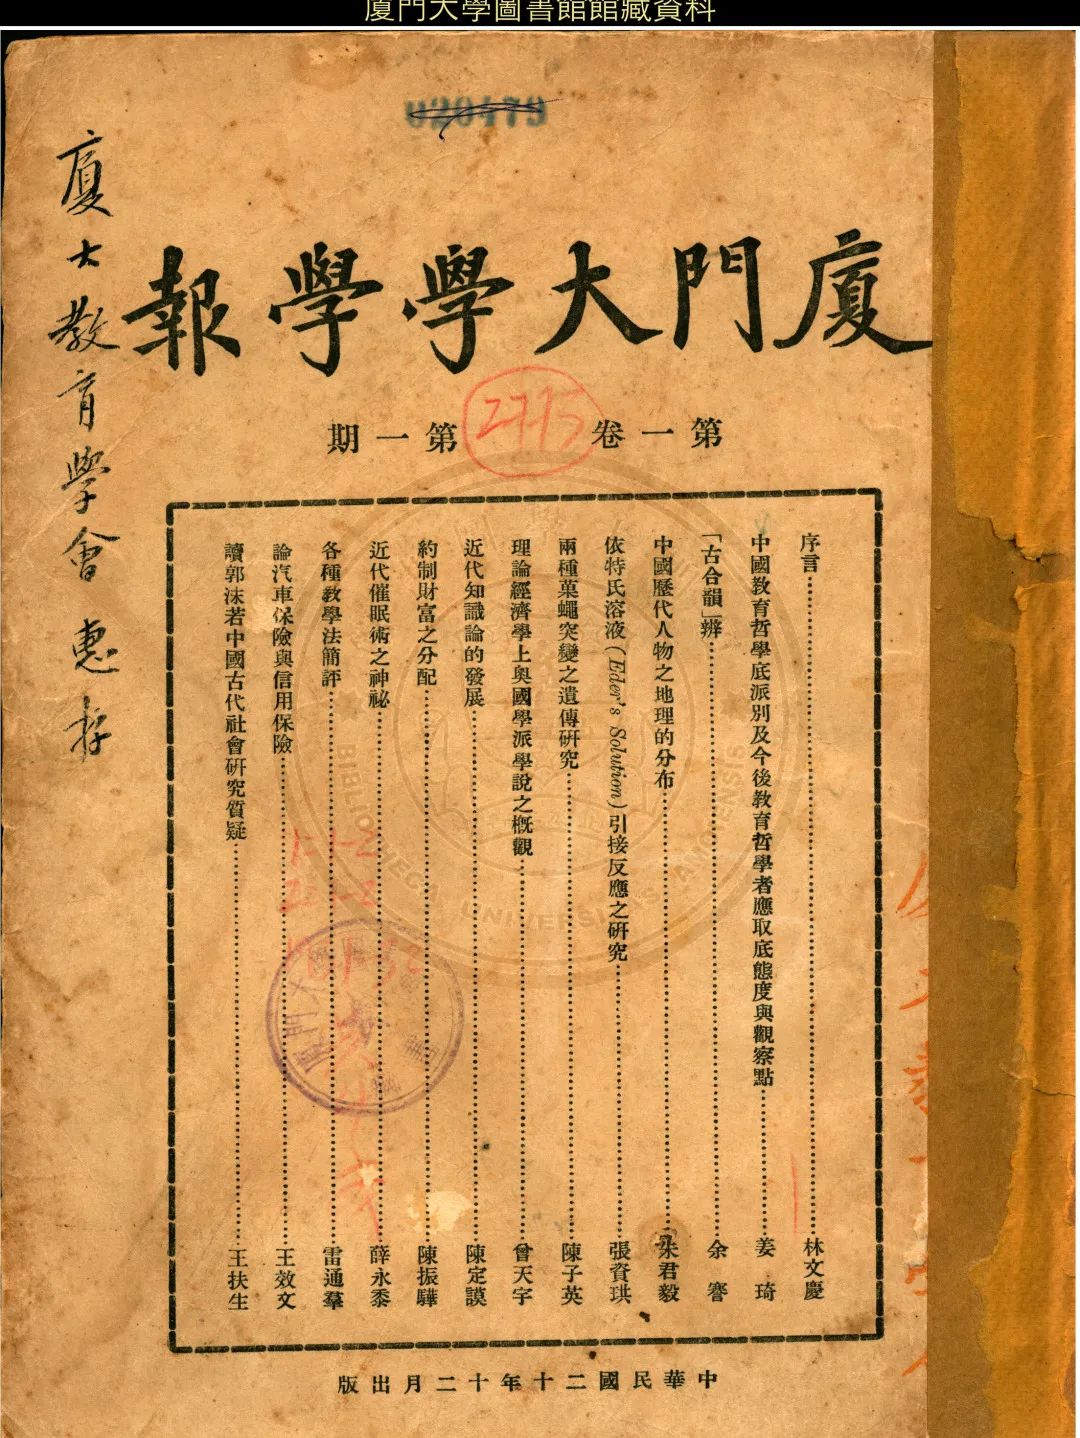 廈門大學圖書館館藏資料
廈門大學學報
第一卷
第一期
2775
序言……林文慶
中國教育哲學底派別及今後教育哲學者應取底態度與觀察點……姜琦
「古合韻」辨……余謇
中國歷代人物之地理的分布……朱君毅
依特氏溶液(Eder's Solution)引接反應之研究……張資珙
兩種菓蠅突變之遺傳研究……陳子英
理論經濟學上奧國學派學說之概觀……曾天宇
近代知識論的發展……陳定謨
約制財富之分配……陳振驊
近代催眠術之神祕……薛永黍
各種教學法簡評……雷通羣
論汽車保險與信用保險……王效文
讀郭沫若中國古代社會研究質疑……王扶生
中華民國二十年十二月出版
廈大教育學會 惠存